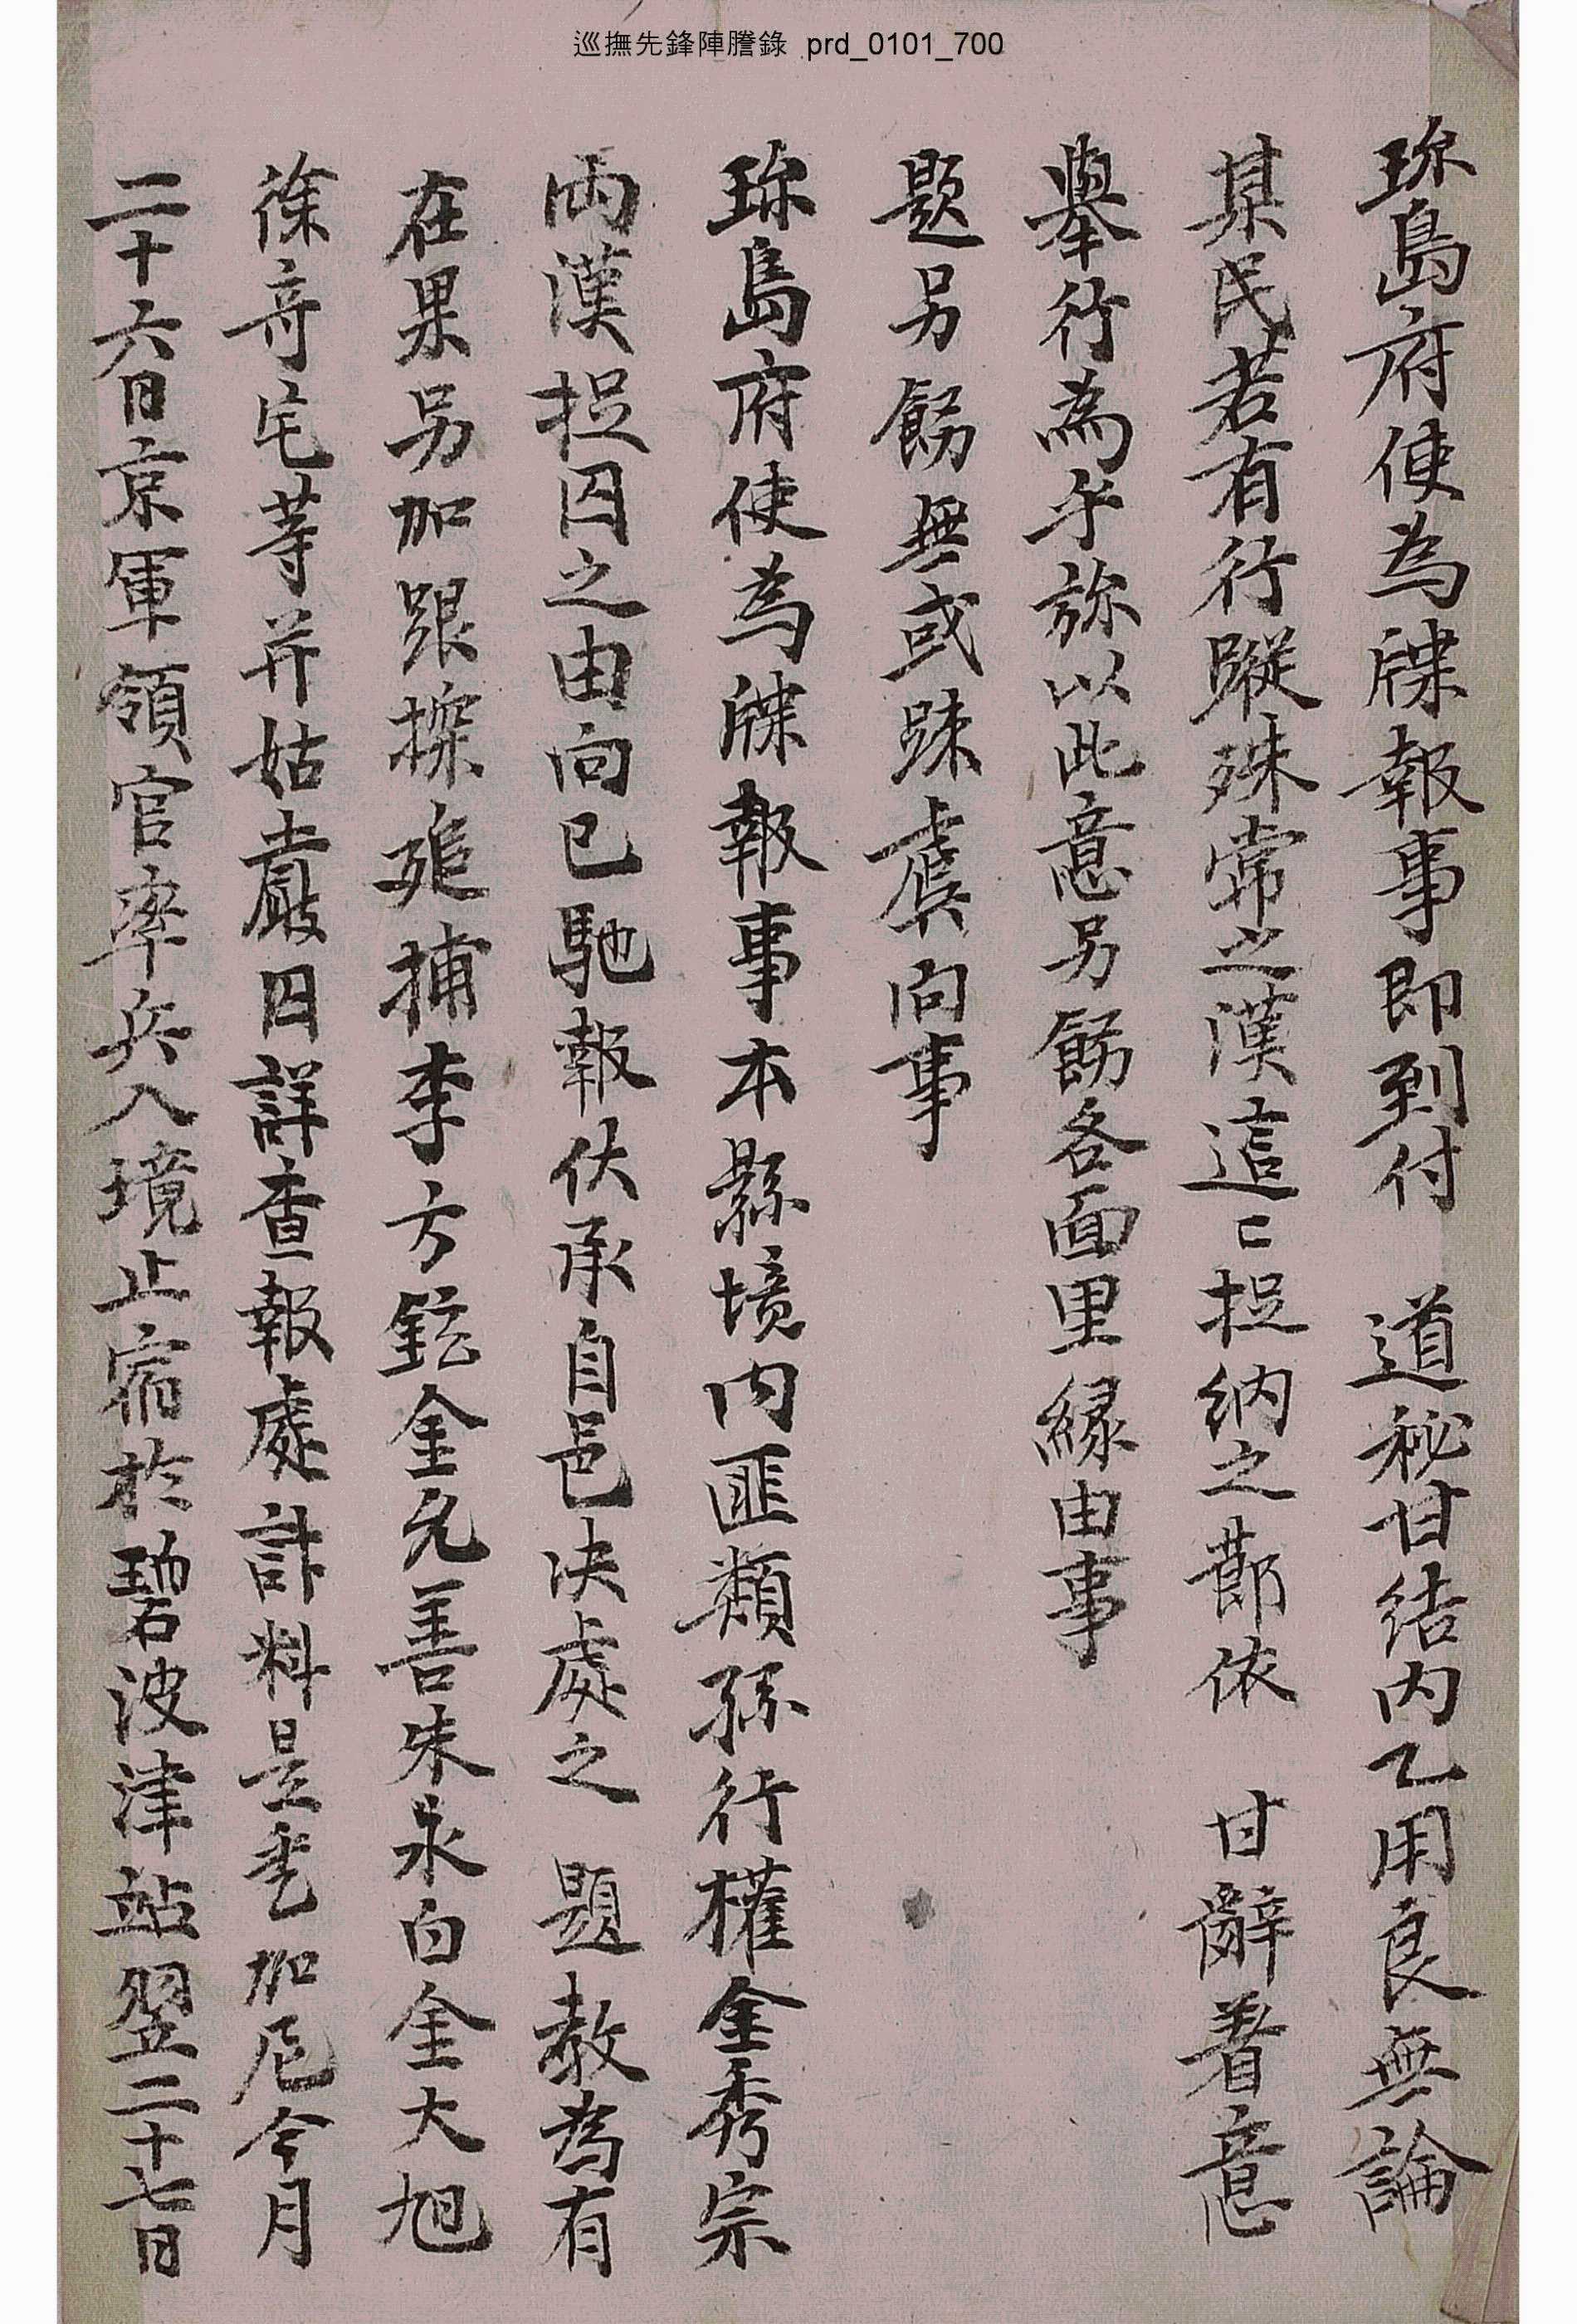 巡撫先鋒陣謄錄 prd_0101_700
珎島府使為牒報事即到付 道秘甘結內乙用良無論
某民若有行蹤殊常之漢這〻捉納之節依 甘辭着意
擧行為乎旀以此意另飭各面里緣由事
題另飭無或踈虞向事
珎島府使為牒報事本縣境內匪類孫行權金秀宗
兩漢捉囚之由向已馳報伏承自邑决處之 題教為有
在果另加跟探追捕李方鉉金允善朱永白金大旭
徐奇宅等并姑嚴囚詳查報處計料是乎加尼今月
二十六日京軍領官率兵入境止宿於碧波津站翌二十七日